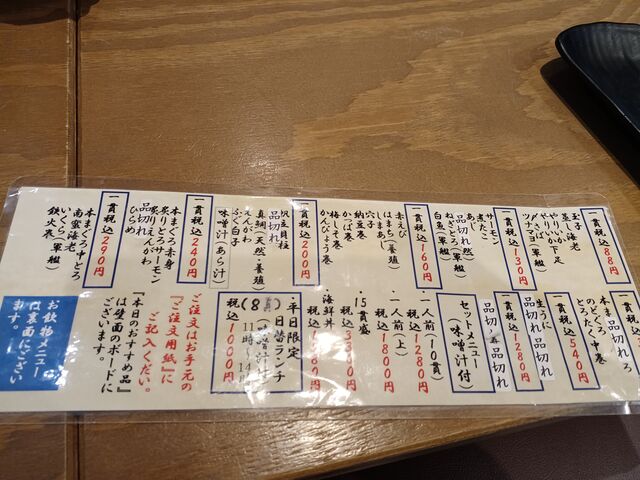 一貫税込88円
玉子
蒸し海老
やりいか
やりいか下足
ツナマヨ(軍艦)
一貫税込130円
サーモン
煮だこ
あじ
品切れ(天然)
ねぎとろ(軍艦)
白魚(軍艦)
一貫税込160円
赤えび
はまち(養殖)
しまあじ
穴子
納豆巻
かっぱ巻
梅しそ巻
かんぴょう巻
一貫税込200円
帆立貝柱
品切れ
真鯛(天然・養殖)
えんがわ
ふぐ白子
味噌汁(あら汁)
一貫税込240円
本まぐろ赤身
炙りとろサーモン
炙りえんがわ
品切れ
ひらめ
一貫税込290円
本まぐろ中とろ
南蛮海老
いくら(軍艦)
鉄火巻
品切れ
本まぐろ
のどぐろ
とろたく中巻
税込540円
品切れ
生うに
品切れ
品切れ
税込1280円
品切れ
品切れ
セットメニュー
(味噌汁付)
・一人前(10貫)
税込1280円
・一人前(上)
・15貫盛
・海鮮丼
・平日限定
日替ランチ
(8貫)
味噌汁付
税込1000円
ご注文はお手元の
『ご注文用紙』に
ご記入ください。
『本日のおすすめ品』
は壁面のボードに
ございます。
お飲物メニュー
は裏面にござい
ます。